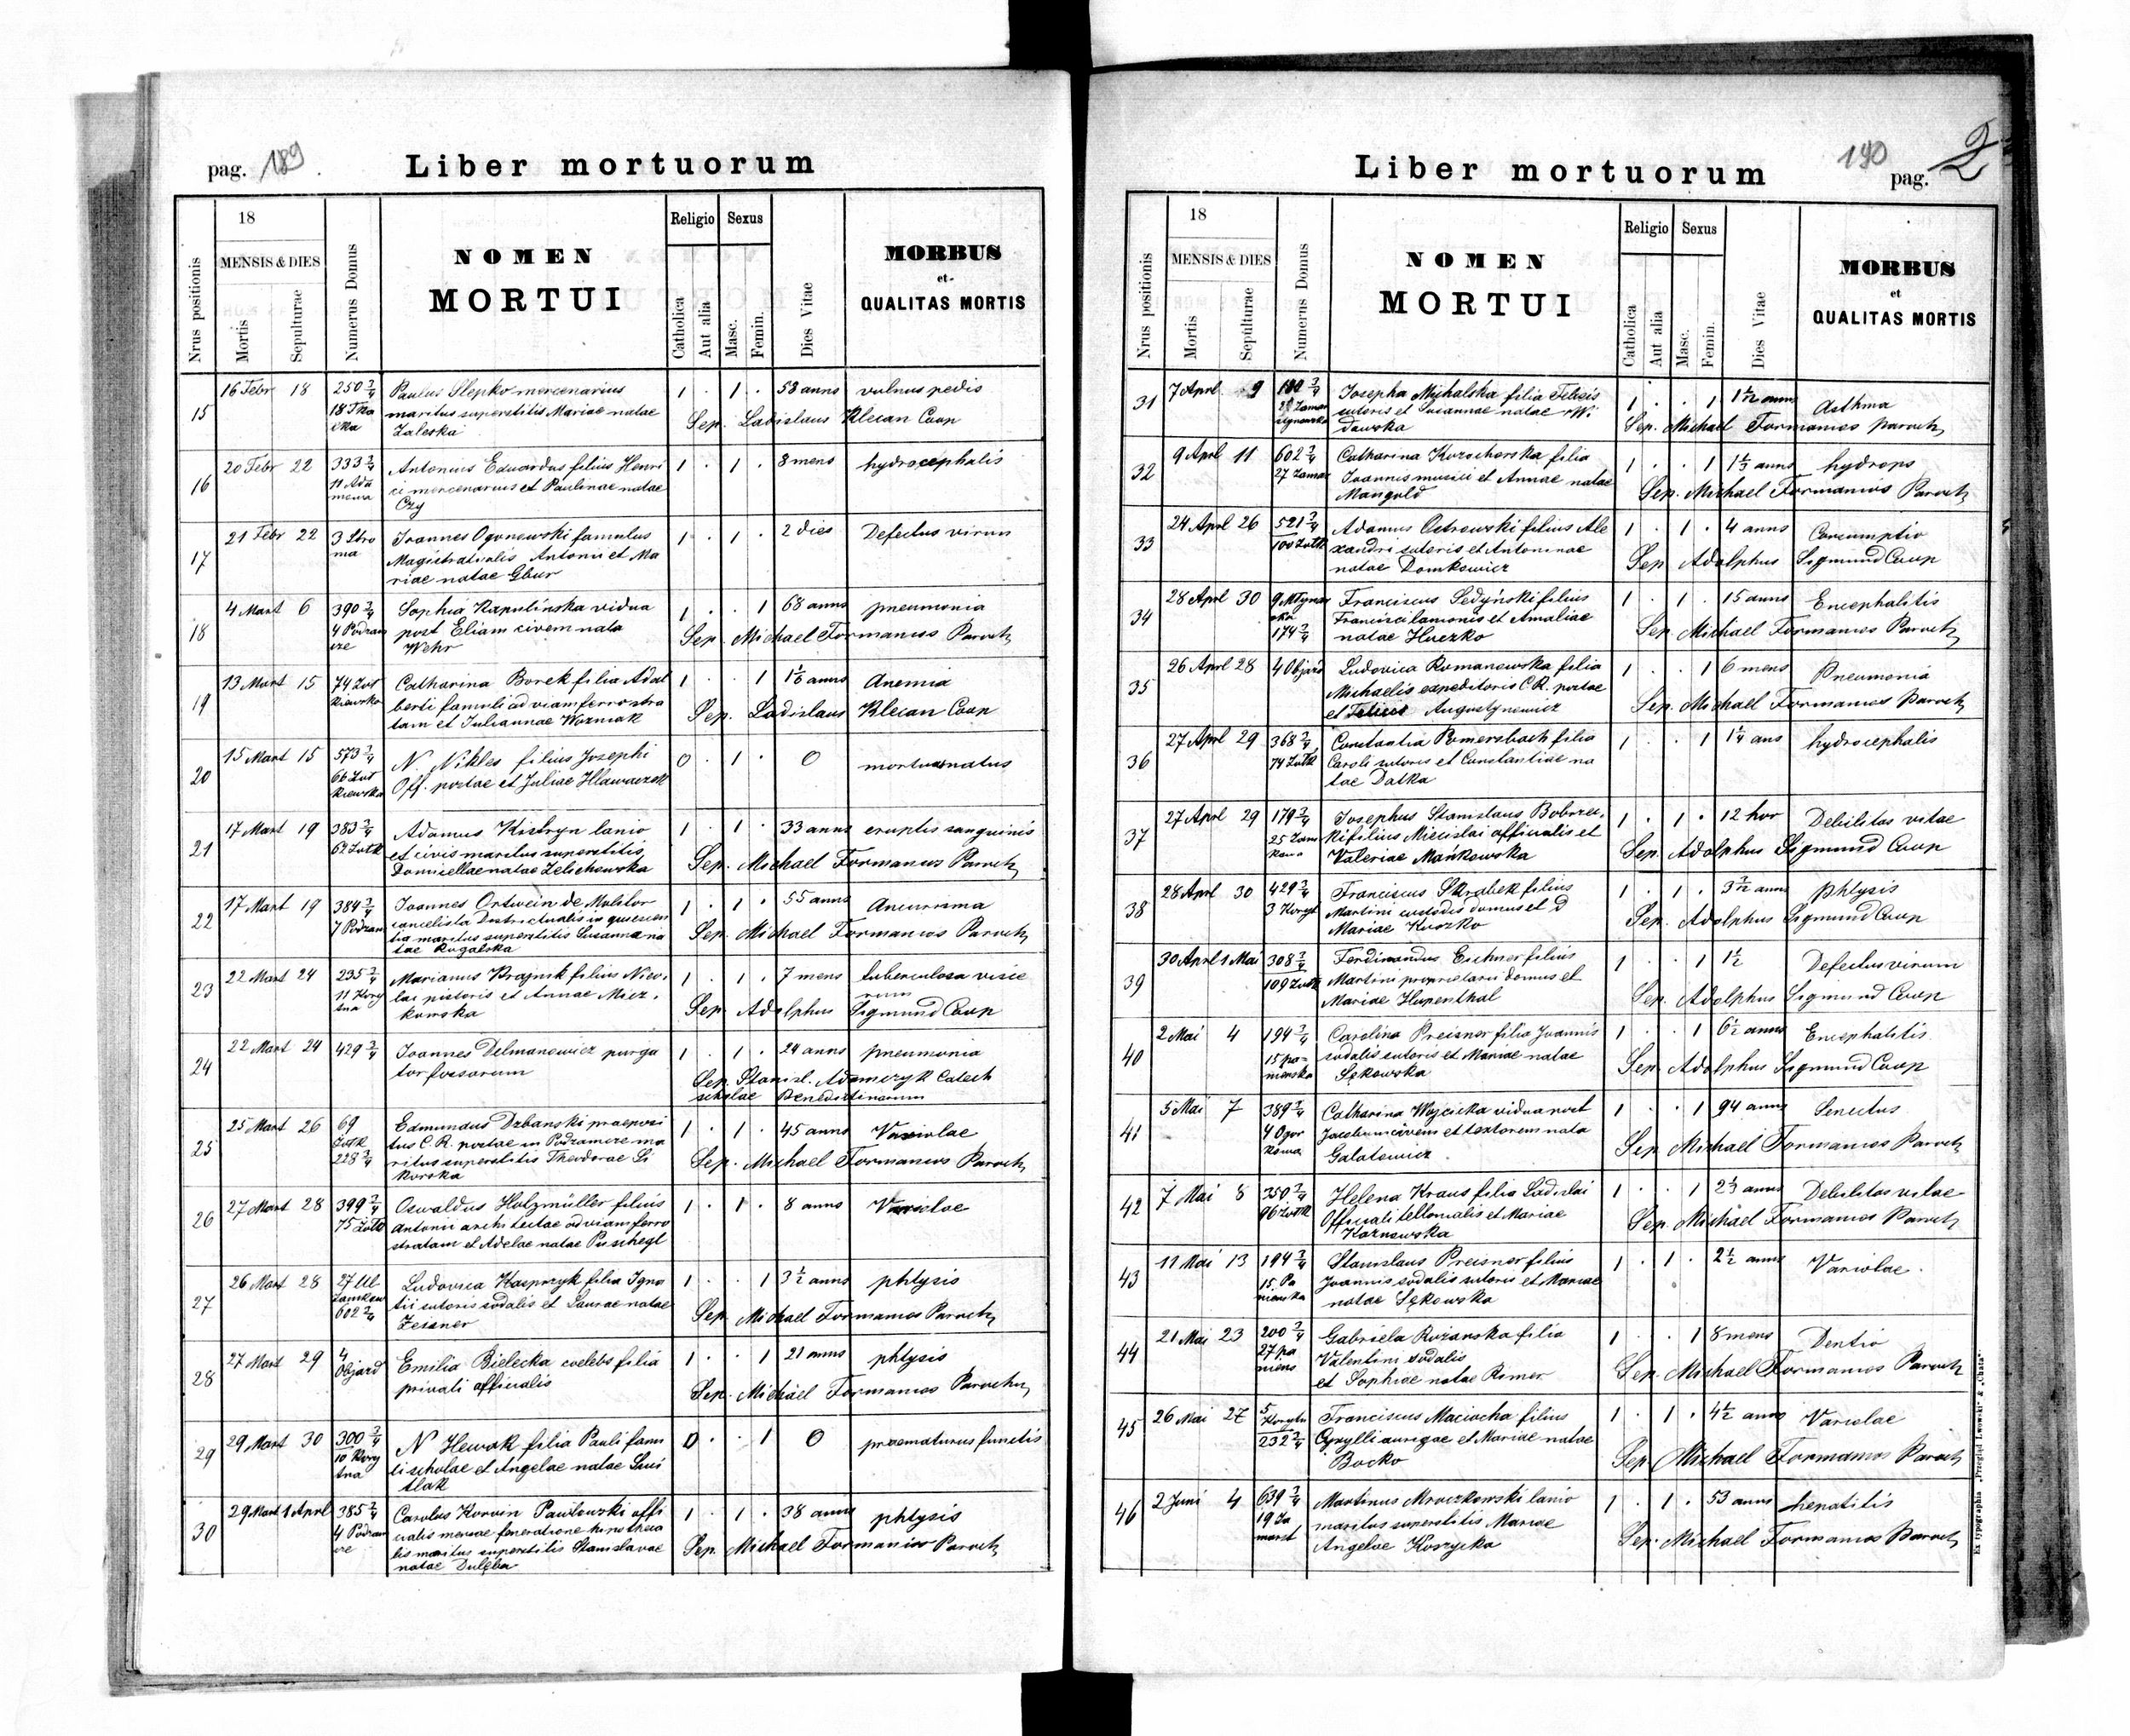 pag. 189
Liber mortuorum
Nrus positionis
18
MENSIS & DIES
Mortis
Sepulturae
Numerus Domus
NOMEN
MORTUI
Religio
Catholica
Aut alia
Sexus
Masc.
Femin.
Dies Vitae
MORBUS
et
QUALITAS MORTIS
15 16 Febr 18 250 2/4 Paulus Slepko mercenarius 1 . 1 . 53 anns vulnus pedis
maritus superstitis Mariae natae
Zaleska Sep. Ladislaus Klecan Coop
16 20 Febr 22 333 2/4 Antonius Eduardus filius Henri 1 . 1 . 8 mens hydrocephalis
ci mercenarius et Paulinae natae
Czy
17 21 Febr 22 3 Stro Joannes Ogonowski famulus 1 . 1 . 2 dies Defectus virum
ma Magistratualis Antonii et Ma
riae natae Gbur
18 4 Mart 6 390 2/4 Sophia Kapulinska vidua 1 . . 1 68 anns pneumonia
4 Podzam post Eliam civem nata Sep. Michael Formanios Paroch
cze Wehr
19 13 Mart 15 74 Żoł Catharina Borek filia Adal 1 . . 1 anns Anemia
kiewska berti famuli ad viam ferrostra
tam et Juliannae Wozniak Sep. Ladislaus Klecan Coop
20 15 Mart 15 573 2/4 N. Nikles filius Josephi 0 . 1 . 0 mortuus natus
Off. postae et Juliae Hlawaczek
21 17 Mart 19 383 2/4 Adamus Kistryn lanio 1 . 1 . 33 anns eruptis sanguinis
et civis maritus superstitis Sep. Michael Formanios Paroch
22 17 Mart 19 384 2/4 Joannes Ortwein de Molitor 1 . 1 . 55 anns Aneurisma
7 Podzam cancelista Districtualis in quiescen
tia maritus superstitis Susanna na Sep. Michael Formanios Paroch
tae Rogalska
23 22 Mart 24 235 2/4 Marianus Krajnik filius Nico 1 . 1 . 7 mens tuberculosa visce
lai pistoris et Annae Micz rum
kowska Sep. Adolphus Sigmund Coop
24 22 Mart 24 429 2/4 Joannes Delmanowicz purga 1 . 1 . 24 anns pneumonia
tor fossarum Sep. Stanisl. Adamczyk Catech
scholae Benedictinarum
25 25 Mart 26 69 Edmundus Dzbanski praeposi 1 . 1 . 45 anns Variolae
tus C.R. postae in Podzamcze ma
228 2/4 ritus superstitis Theodorae Si Sep. Michael Formanios Paroch
korska
26 27 Mart 28 399 2/4 Oswaldus Holzmüller filius 1 . 1 . 8 anns Variolae
75 Żołk Antonii architectae ad viam ferro
stratam et Adelae natae Puschegl
27 26 Mart 28 27 Ul Ludovica Kasprzyk filia Igna 1 . . 1 3 1/2 anns phtysis
Zamkow tii sutoris sodalis et Laurae natae
602 2/4 Zeisner Sep. Michael Formanios Paroch
28 27 Mart 29 4 Objazd Emilia Bielecka coelebs filia 1 . . 1 21 anns phtysis
privati officialis Sep. Michael Formanios Parochu
29 29 Mart 30 300 2/4 N Hewak filia Pauli fam 0 . . 1 0 praematurus functis
li scholae et Angelae natae
tlak
30 29 Mart 1 Aprl 385 2/4 Carolus Korvin Pawlowski offi 1 . 1 . 38 anns phtysis
lis maritus superstitis Stanislavae Sep. Michael Formanios Paroch
natae Dulęba
190
pag. 2
Liber mortuorum
Nrus positionis
18
MENSIS & DIES
Mortis
Sepulturae
Numerus Domus
NOMEN
MORTUI
Religio
Catholica
Aut alia
Sexus
Masc.
Femin.
Dies Vitae
MORBUS
et
QUALITAS MORTIS
31 7 Aprl 9 Josepha Michalska filia Felicis 1 . . 1 anns Asthma
sutoris et Susannae natae Wi
dawska Sep. Michael Formanios paroch
32 9 Aprl 11 602 2/4 Catharina Kurochorska filia 1 . . 1 1 1/3 anns hydrops
27 Zamar Joannis musici et Annae natae
Mangold Sep. Michael Formanios Paroch
33 24 Aprl 26 521 2/4 Adamus Ostrowski filius Ale 1 . 1 . 4 anns Consumptio
100 Żołk xandri sutoris et Antoninae
natae Domkowicz Sep Adolphus Sigmund Coop
34 28 Aprl 30 9 Młynar Franciscus Sedyński filius 1 . 1 . 15 anns Encephalitis
ska Francisci lanionis et Amaliae
174 2/4 natae Huczko Sep. Michael Formanios Paroch
35 26 Aprl 28 4 Objazd Ludovica Romanowska filia 1 . . 1 6 mens Pneumonia
Michaelis expeditoris C.R. postae
et Felicis Augustynowicz Sep. Michael Formanios Paroch
36 27 Aprl 29 368 2/4 Constantia Pomersbach filia 1 . . 1 1 1/4 ans hydrocephalis
74 Żołk Caroli sutoris et Constantiae na
tae Datka
37 27 Aprl 29 179 2/4 Josephus Stanislaus Bobrzec 1 . 1 . 12 hor Debilitas vitae
ki filius Miecislai officialis et
Valeriae Mańkowska Sep. Adolphus Sigmund Coop
38 28 Aprl 30 429 2/4 Franciscus Skrabek filius 1 . 1 . anns phtysis
3 Koryt Martini custodis domus et D
Mariae Kuczko Sep. Adolphus Sigmund Coop
39 30 Aprl 1 Mai 308 2/4 Ferdinandus Eichner filius 1 . . 1 1/2 Defectus virum
109 Żołk Martini proprietarii domus et
Mariae Hupenthal Sep. Adolphus Sigmund Coop
40 2 Mai 4 194 2/4 Carolina Preisner filia Joannis 1 . . 1 6 1/2 anns Encephalitis
15 pa- sodalis sutoris et Mariae natae
nienska Sękowska Sep. Adolphus Sigmund Coop
41 5 Mai 7 389 2/4 Catharina Wojcicka vidua post 1 . . 1 94 anns Senectus
4 Ogor Jacobum civem et textorem nata
kowa Galatowicz Sep. Michael Formanios Paroch
42 7 Mai 8 350 2/4 Helena Kraus filia Ladislai 1 . . 1 2 1/3 anns Debilitas vitae
96 Żołk Officiali tellonialis et Mariae
Kaznowska Sep. Michael Formanios Paroch
43 11 Mai 13 194 2/4 Stanislaus Preisner filius 1 . 1 . 2 1/2 anns Variolae
15 Pa Joannis sodalis sutoris et Mariae
nienska natae Sękowska
44 21 Mai 23 200 2/4 Gabriela Rozanska filia 1 . . 1 8 mens Dentio
27 pa Valentini sodalis
niens et Sophiae natae Rimer Sep. Michael Formanios Paroch
45 26 Mai 27 5 Koryto Franciscus Maciocha filius 1 . 1 . 4 1/2 anns Variolae
232 2/4 Cyrylli aurigae et Mariae natae
Bocko Sep Michael Formanios Paroch
46 2 Juni 4 639 2/4 Martinus Mroczkowski lanio 1 . 1 . 53 anns hepatitis
maritus superstitis Mariae
Angelae Koszycka Sep. Michael Formanios Paroch
Ex typographia „Przegląd Lwowski" & „Chata".